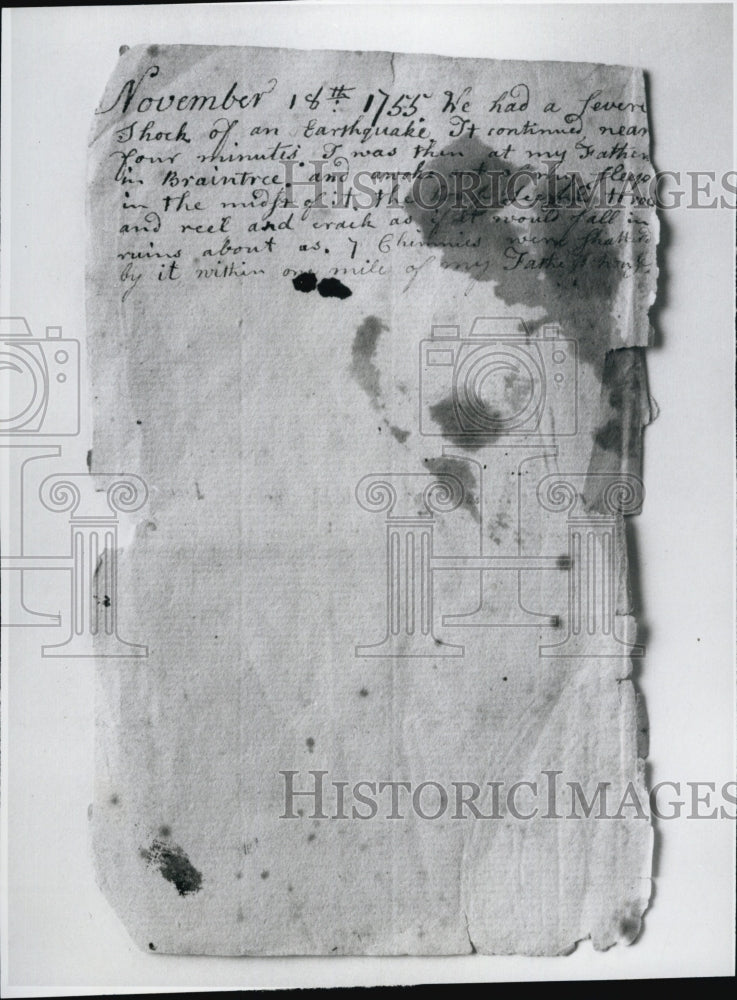 November 18th. 1755 We had a Severe
Shock of an Earthquake. It continued near
four minutes. I was then at my Fathers
in Braintree, and awoke out of my Sleep
in the midst of it, the
and reel and crack as if it would fall in
ruins about us. 7 Chimnies were Shatter'd
by it within one mile of my Fathers house
HISTORICIMAGES
HISTORICIMAGES